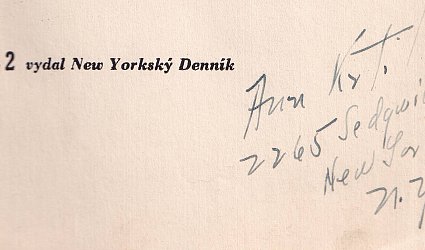 2 vydal New Yorkský Denník
Ann
2265 Sedgwi
New Yor
N.Y